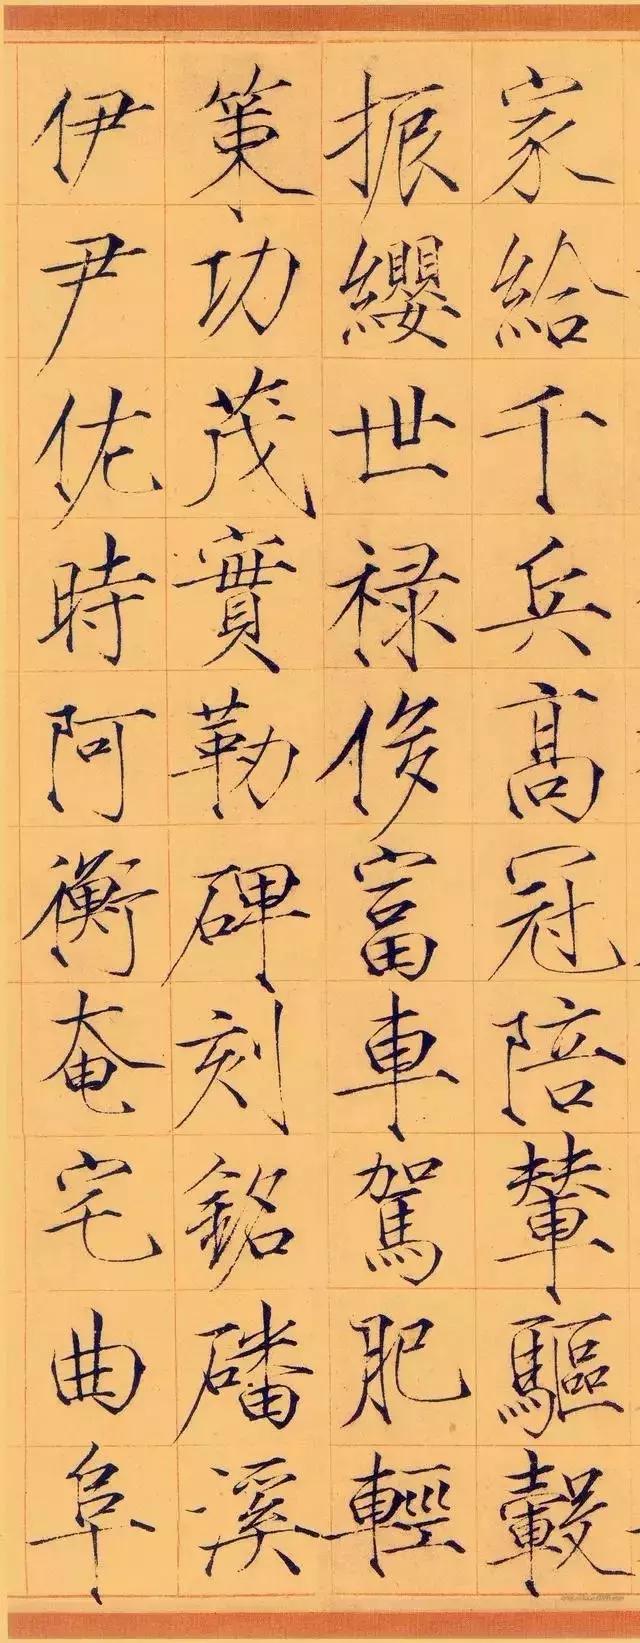 家給千兵高冠陪輦驅轂
振纓世禄侈富車駕肥輕
策功茂實勒碑刻銘磻溪
伊尹佐時阿衡奄宅曲阜